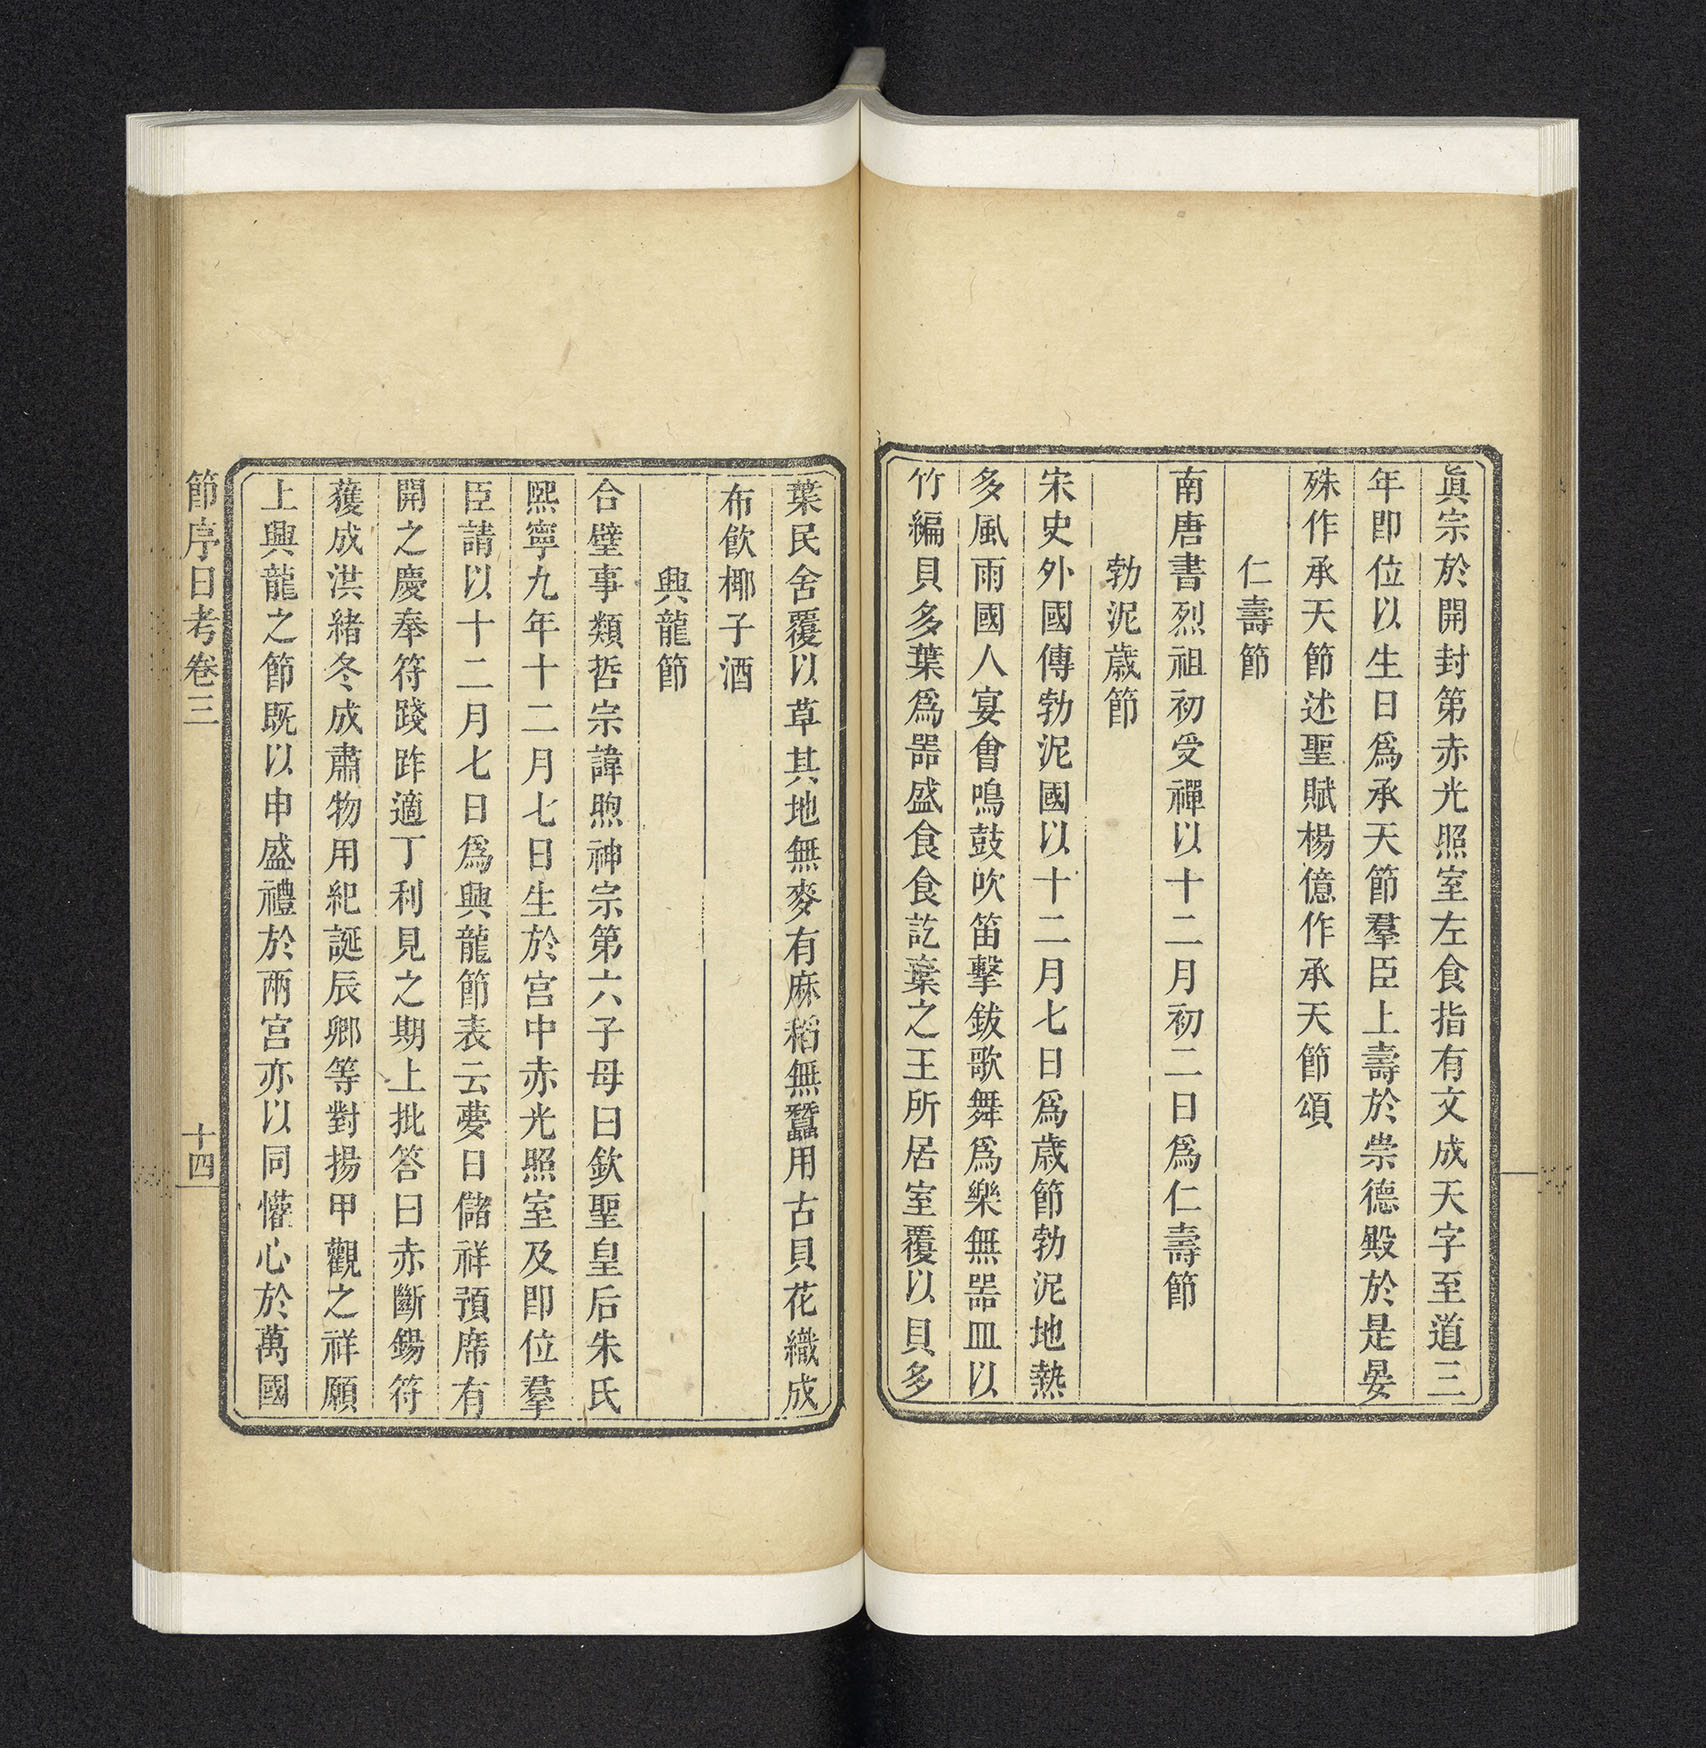 眞宗於開封第赤光照室左食指有文成天字至道三
年卽位以生日爲承天節羣臣上壽於崇德殿於是晏
殊作承天節述聖賦楊億作承天節頌
仁壽節
南唐書烈祖初受禪以十二月初二日爲仁壽節
勃泥歲節
宋史外國傳勃泥國以十二月七日爲歲節勃泥地熱
多風雨國人宴會鳴鼓吹笛擊鈸歌舞爲樂無器皿以
竹編貝多葉爲器盛食食訖棄之王所居室覆以貝多
葉民舍覆以草其地無麥有麻稻無蠶用古貝花織成
布飲椰子酒
興龍節
合璧事類哲宗諱煦神宗第六子母曰欽聖皇后朱氏
熙寧九年十二月七日生於宮中赤光照室及卽位羣
臣請以十二月七日爲興龍節表云夢日儲祥預席有
開之慶奉符踐昨適丁利見之期上批答曰赤斷錫符
蒦成洪緒冬成肅物用紀誕辰卿等對揚甲觀之祥願
上興龍之節既以申盛禮於兩宮亦以同懽心於萬國
節序日考卷三
十四